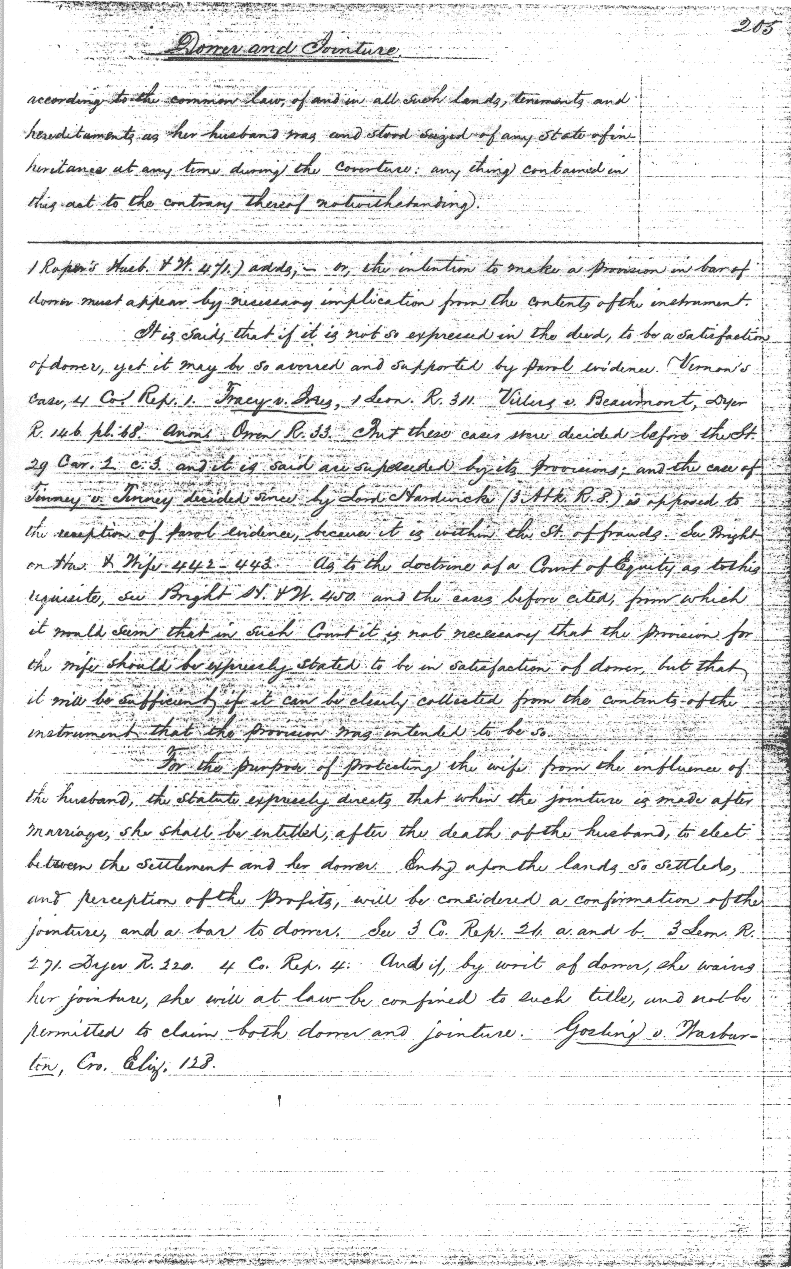 205
Dower and Jointure.
according to the common law, of and in all such lands, tenements and
hereditaments, as her husband was and stood seized of any State of in-
heritance at any time during the coverture: any thing contained in
this act to the contrary thereof notwithstanding).
1 Roper's Husb. & W. 471.) adds, – or, the intention to make a provision in bar of
dower must appear by necessary implication from the contents of the instrument.
It is said, that if it is not so expressed in the deed, to be a satisfaction
of dower, yet it may be so averred and supported by parol evidence. Vernon's
case, 4 Co. Rep. 1. Tracy v. Ives, 1 Leon. R. 311. Villers v. Beaumont, Dyer
R. 146. pl. 68. Anon. Owen R. 33. But these cases were decided before the St.
29 Car. 2 c. 3. and it is said are superseded by its provisions; and the case of
Tinney v. Tinney decided since by Lord Hardwicke (3 Atk. R. 8) is opposed to
the reception of parol evidence, because it is within the St. of frauds. See Bright
on Hus. & Wife 442-443. As to the doctrine of a Court of Equity as to this
requisite, see Bright H. & W. 450. and the cases before cited, from which
it would seem that in such Court it is not necessary that the provision for
the wife should be expressly stated to be in satisfaction of dower, but that
it will be sufficient, if it can be clearly collected from the contents of the
instrument that the provision was intended to be so.
For the purpose of protecting the wife from the influence of
the husband, the statute expressly directs that when the jointure is made after
marriage, she shall be intitled, after the death of the husband, to elect
between the settlement and her dower. Entry upon the lands so settled,
and perception of the profits, will be considered a confirmation of the
jointure, and a bar to dower. See 3 Co. Rep. 26. a. and b. 3 Leon. R.
271. Dyer R. 220. 4 Co. Rep. 4. And if, by writ of dower, she waives
her jointure, she will at law be confined to such title, and not be
permitted to claim both dower and jointure. Gosling v. Warbur-
ton, Cro. Eliz. 128.